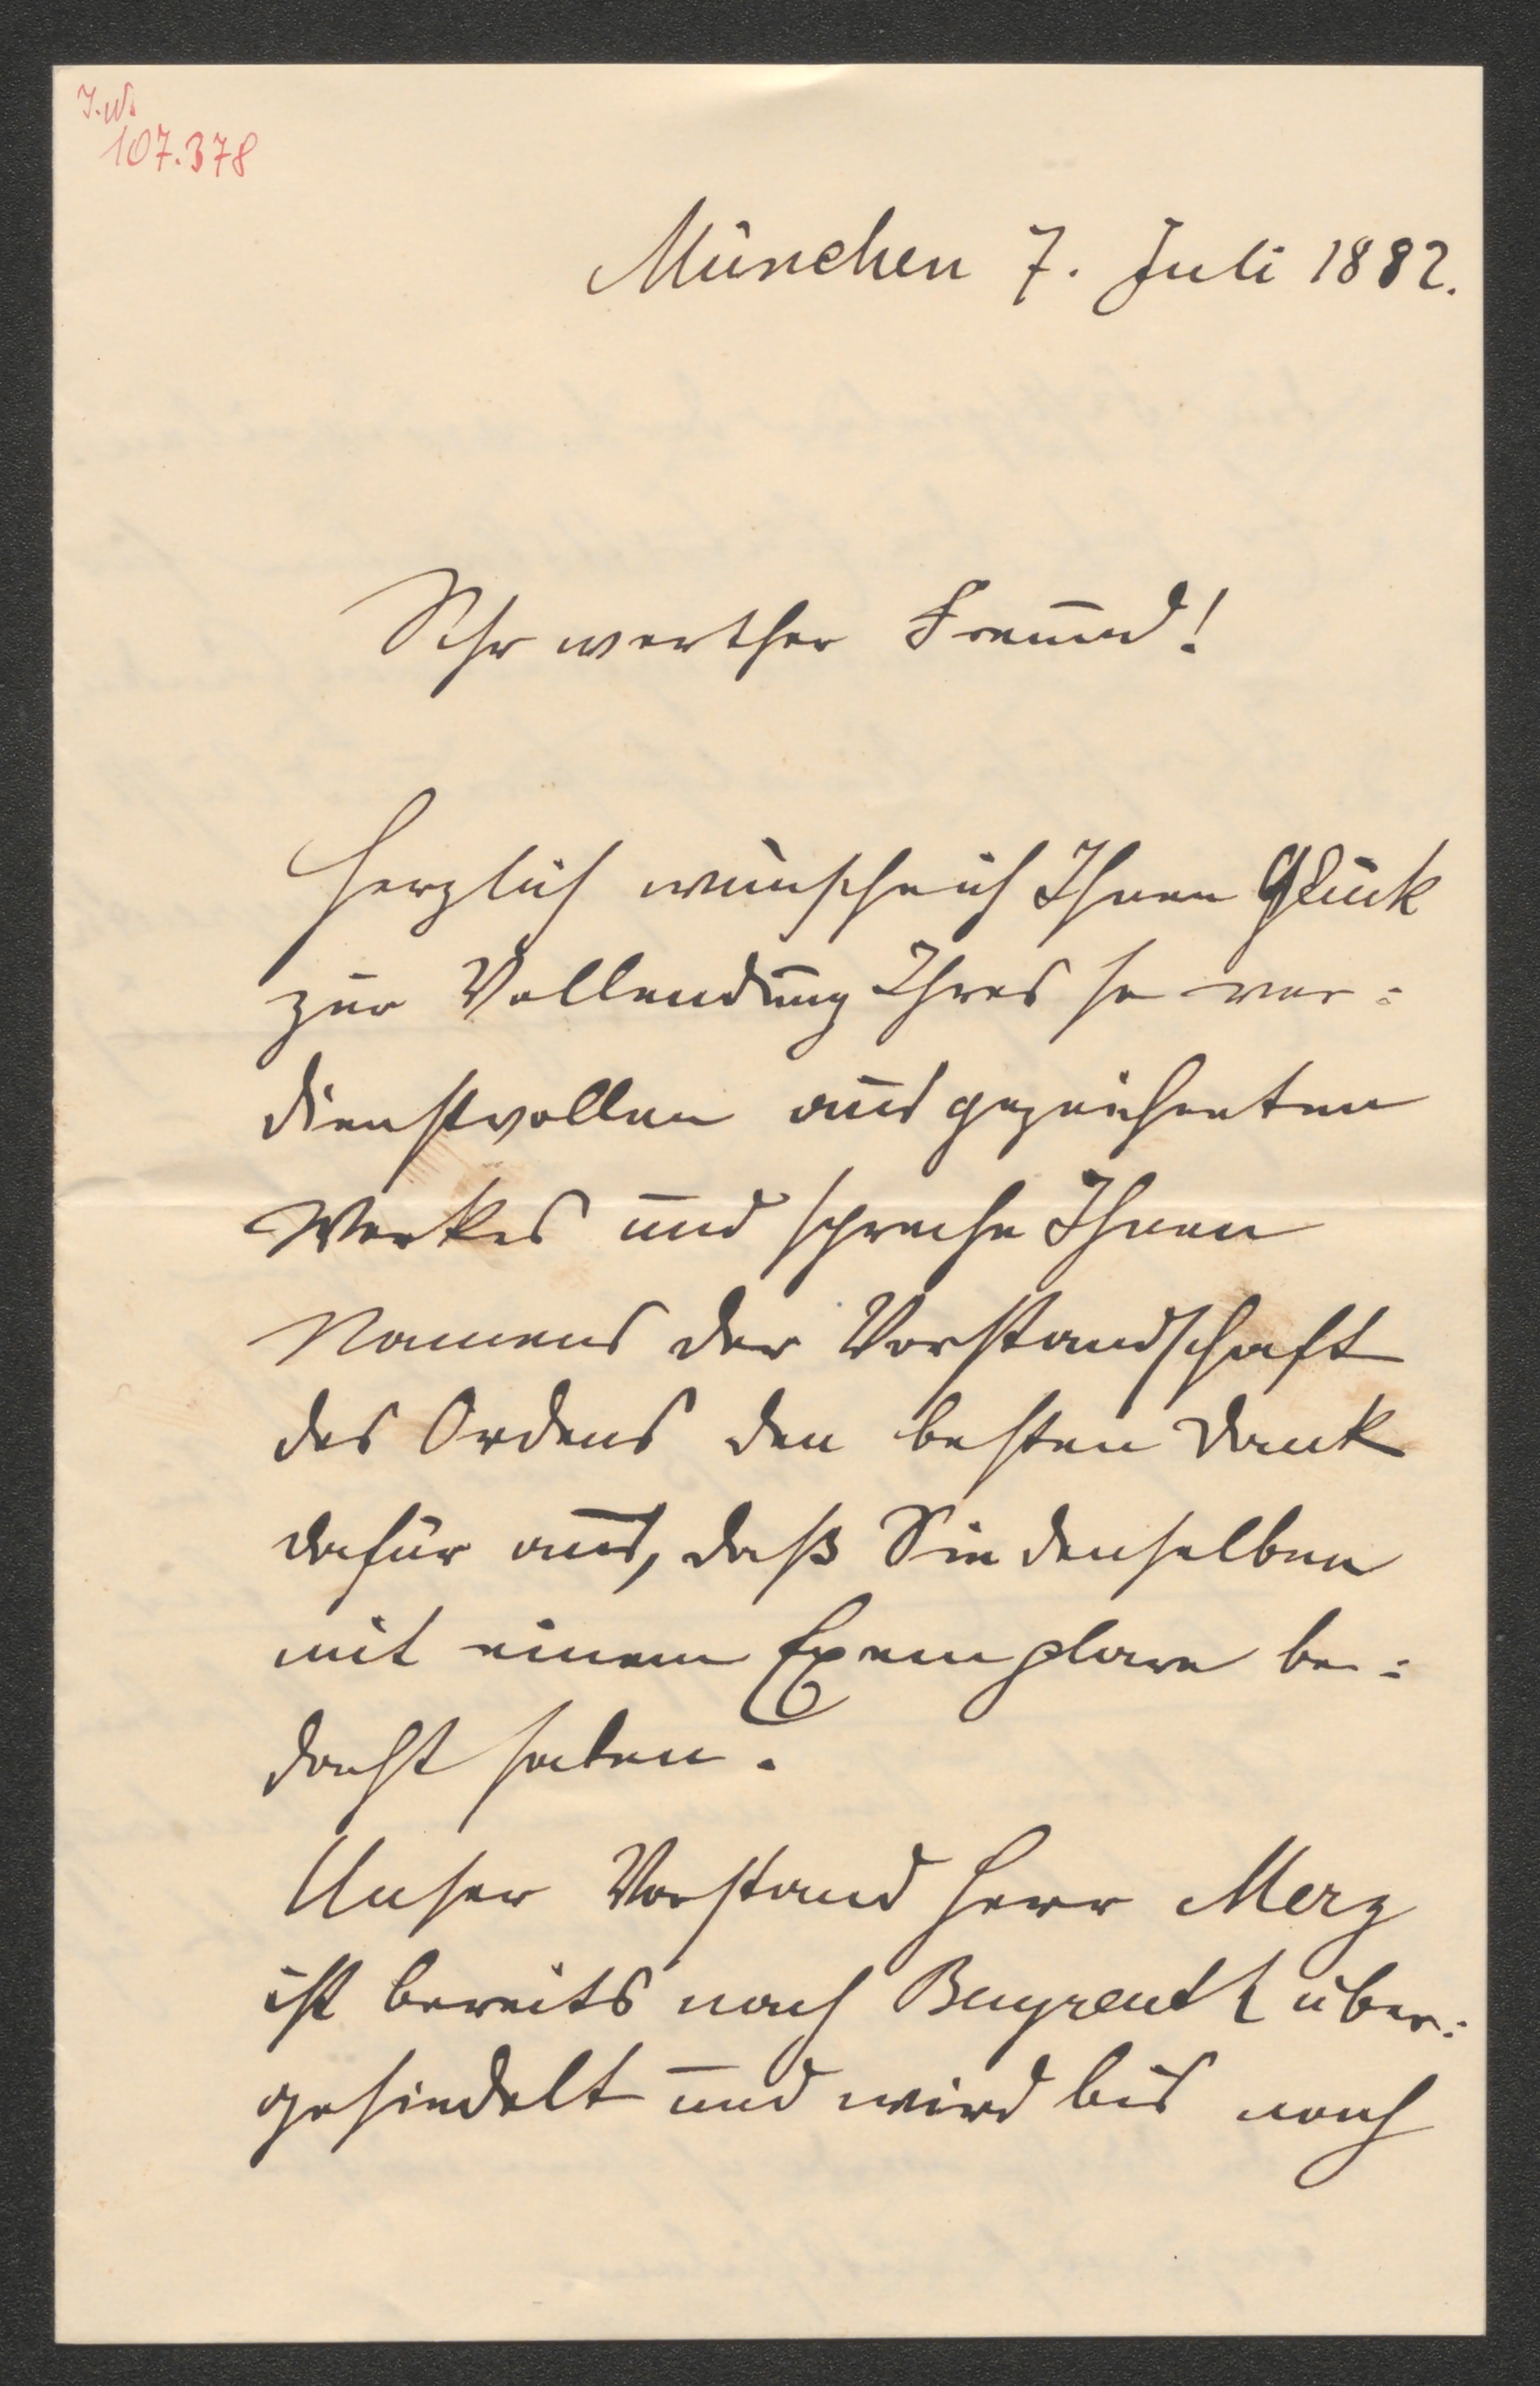 J.N.
107.378
München 7. Juli 1882.
Sehr werther Freund!
Herzlich wünsche ich Ihnen Glück
zur Vollendung Ihres so ver=
dienstvollen ausgezeichneten
Werkes und spreche Ihnen
Namens der Vorstandschaft
des Ordens den besten Dank
dafür aus, daß Sie denselben
mit einem Exemplare be=
dacht haben.
Unser Vorstand Herr Merz
ist bereits nach Bayreuth über=
gesiedelt und wird bis nach